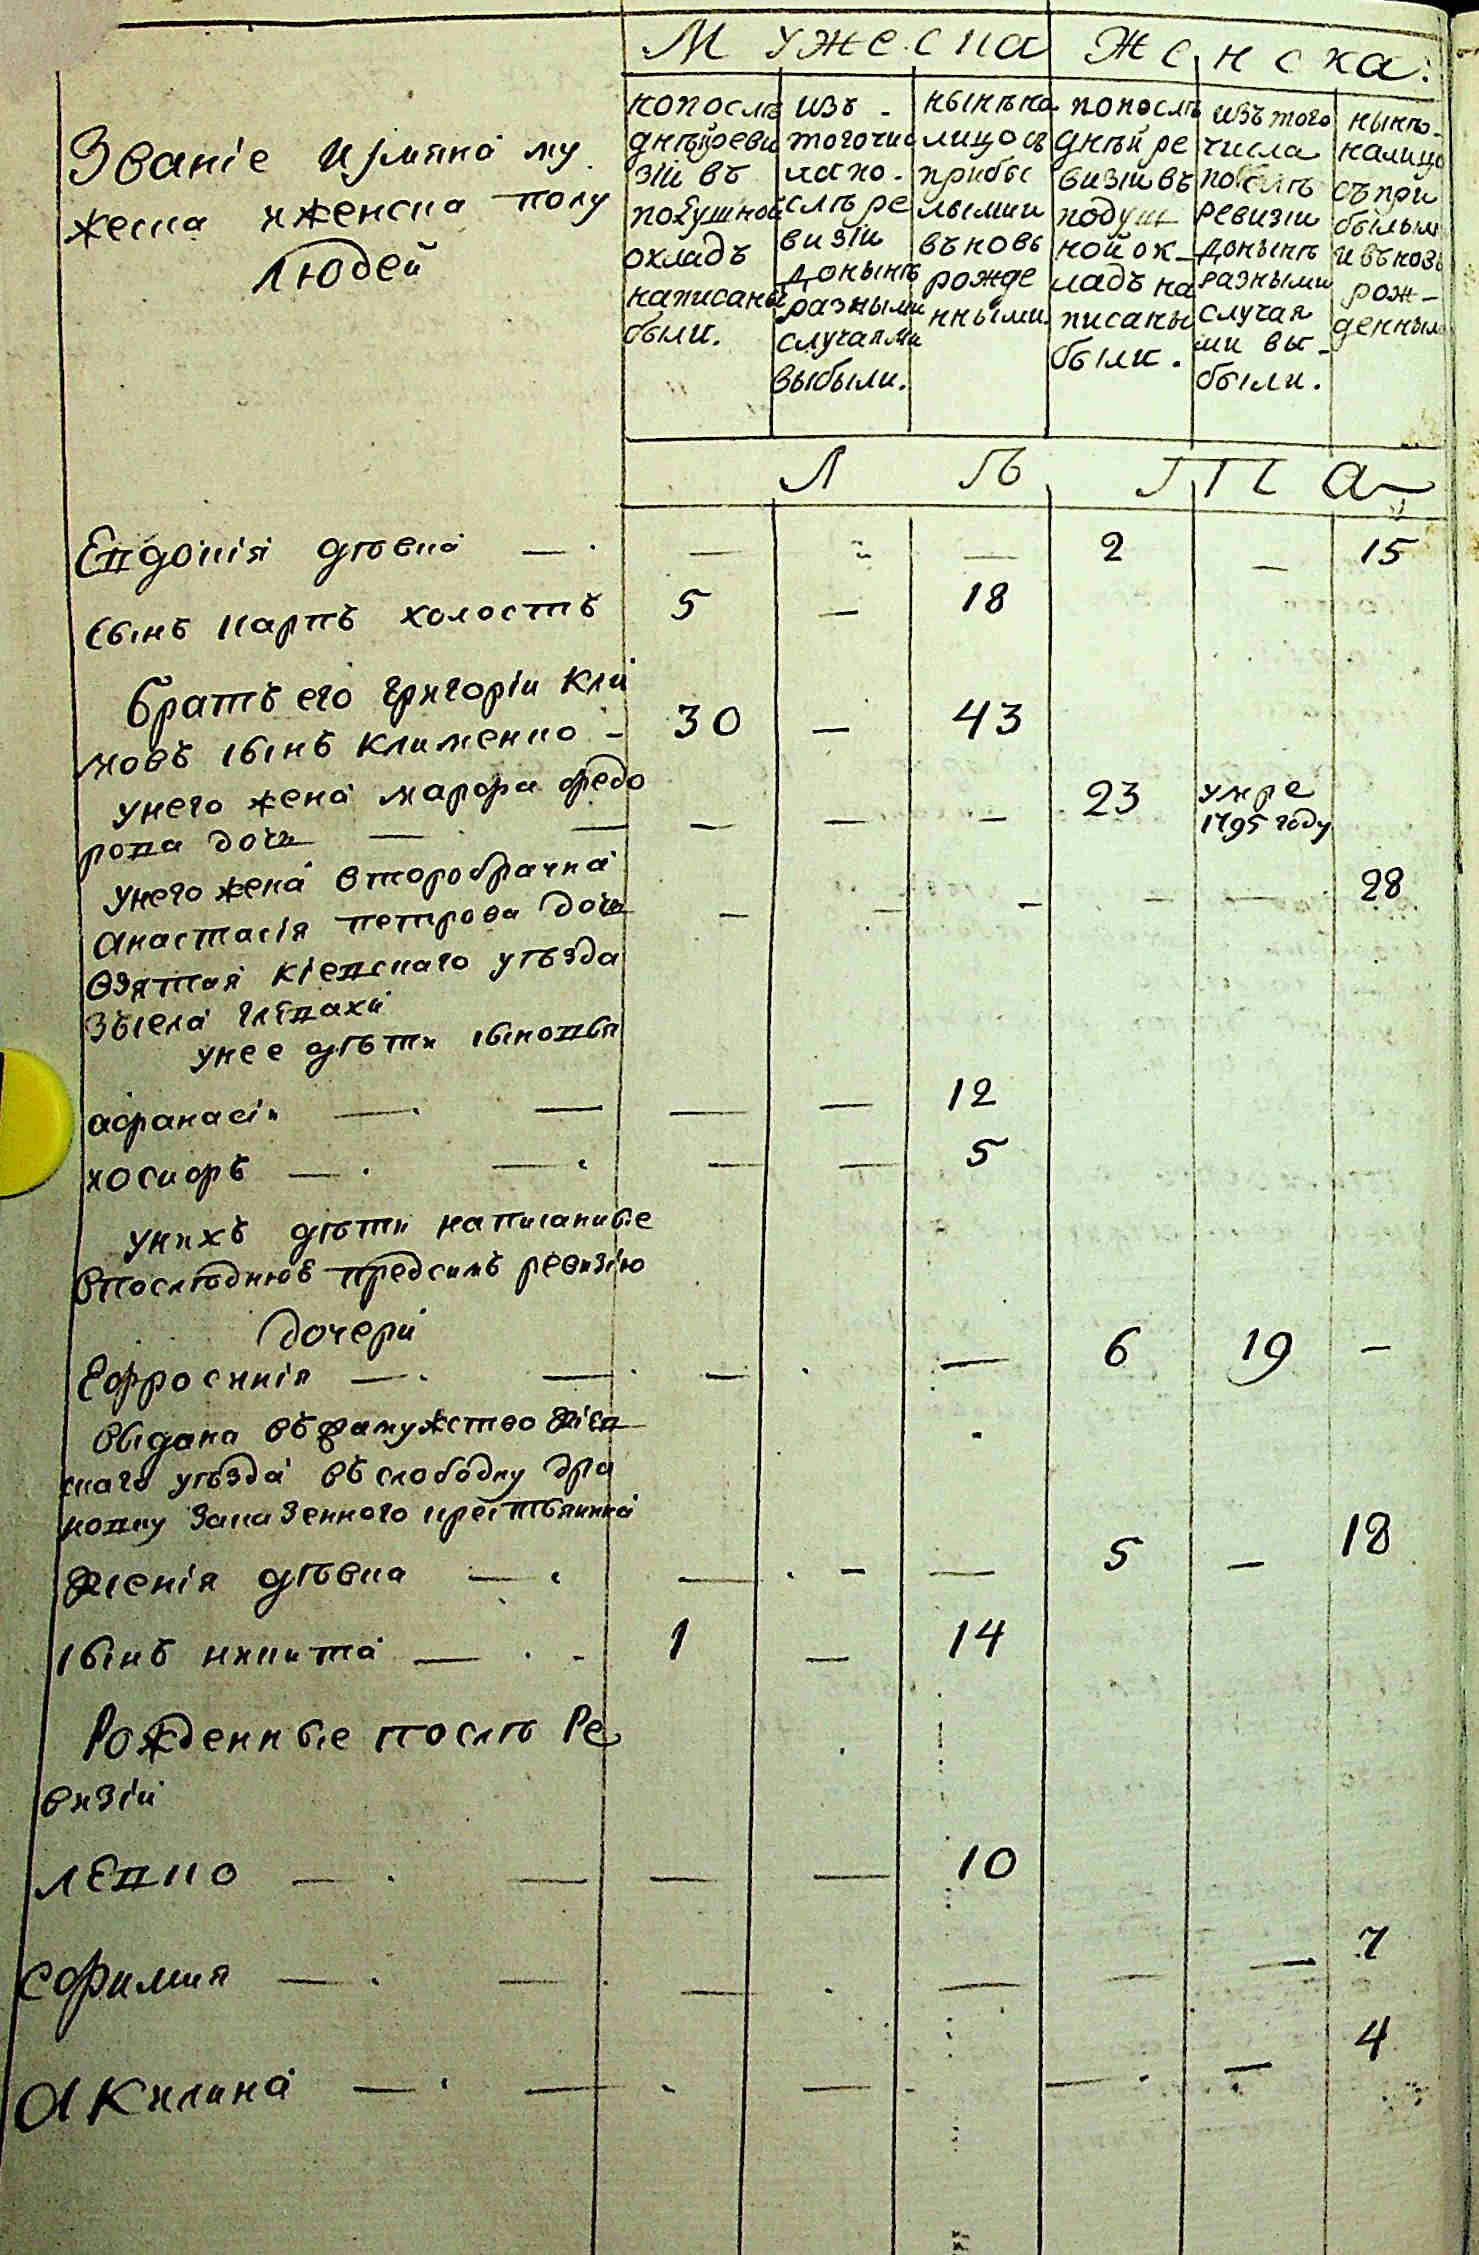 Мужеска Женска.
Званіе и имяна му
жеска и женска полу
людей
по после
дней реви
зіи въ
подушной
окладъ
написаны
были.
изъ -
того чис
ла по -
слѣ ре
визіи
донынѣ
разными
случаями
выбыли.
нынѣ на
лицо съ
прибы
лыми и
въновь
рожде
нными.
по послѣ
дней ре
визіи въ
подуш
ной ок-
ладъ на
писаны
были.
изъ того
числа
послѣ
ревизіи
донынѣ
разными
случая
ми вы-
были.
нынѣ -
налицо
съ при
былым
и въновь
рож-
денным
Л ѣ т а
Евдокія дѣвка — — — 2 — 15
сынъ карпъ холостъ 5 — 18
братъ его григоріи кли
мовъ сынъ клименко - 30 — 43
унего жена марфа федо
рова дочь — — — — — 23 умре
1795 году
унего жена второбрачна
анастасія петрова дочь — — — — — 28
взятая кіевскаго уѣзда
зъ села глевахи
унее дѣти сыновья
афанасіи — — — — 12
никифоръ — — — — 5
унихъ дѣти написанные
впослѣднюю предсимъ ревизію
дочери
Ефросинія — — — — 6 19 —
выдана въ замужство кіев
скаго уѣзда въ слободку
за казенного крестьянина
ксенія дѣвка — — — — 5 — 18
сынъ никита — 1 — 14
Рожденные послѣ Ре
визіи
левко — — — — 10
ефимия — — — — — — 7
акилина — — — — — 4